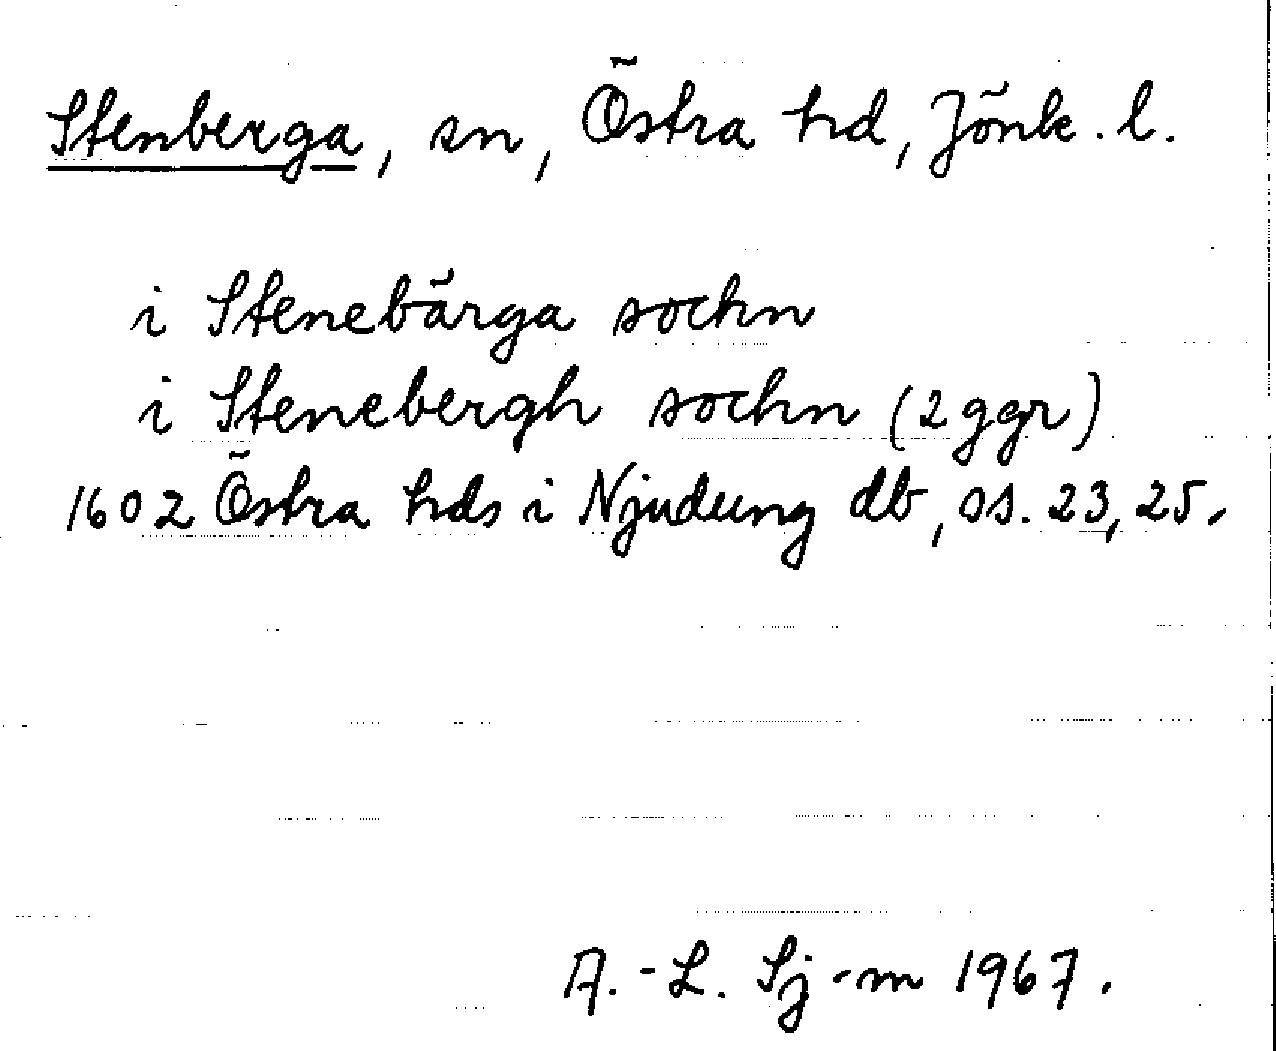 Stenberga, sn, Östra hd, Jönk. l.
i Stenebärga sochn
i Stenebergh sochn (2 ggr)
1602 Östra hds i Njudung db, ss. 23, 25.
A.-L. Sj-m 1967.